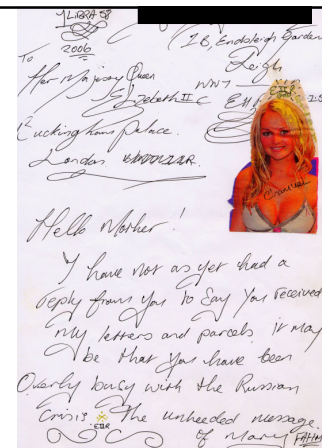 1 LIBRA 58
2006
1B, Endsleigh Gardens
To
Leigh
Her Majesty Queen
Elizabeth II
Buckingham Palace.
London
EIIR
Hello Mother!
I have not as yet had a
reply from you to say you received
my letters and parcels it may
be that you have been
Overly busy with the Russian
Crisis
The unheeded message.
EIIR
of Mary